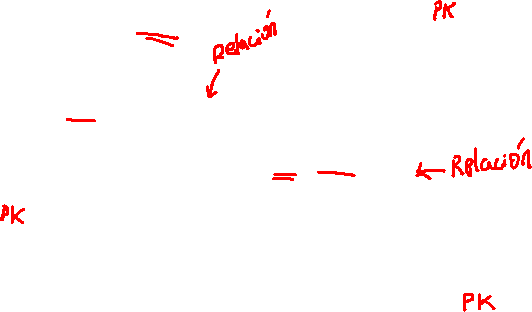 PK
Relación
Relación
PK
PK